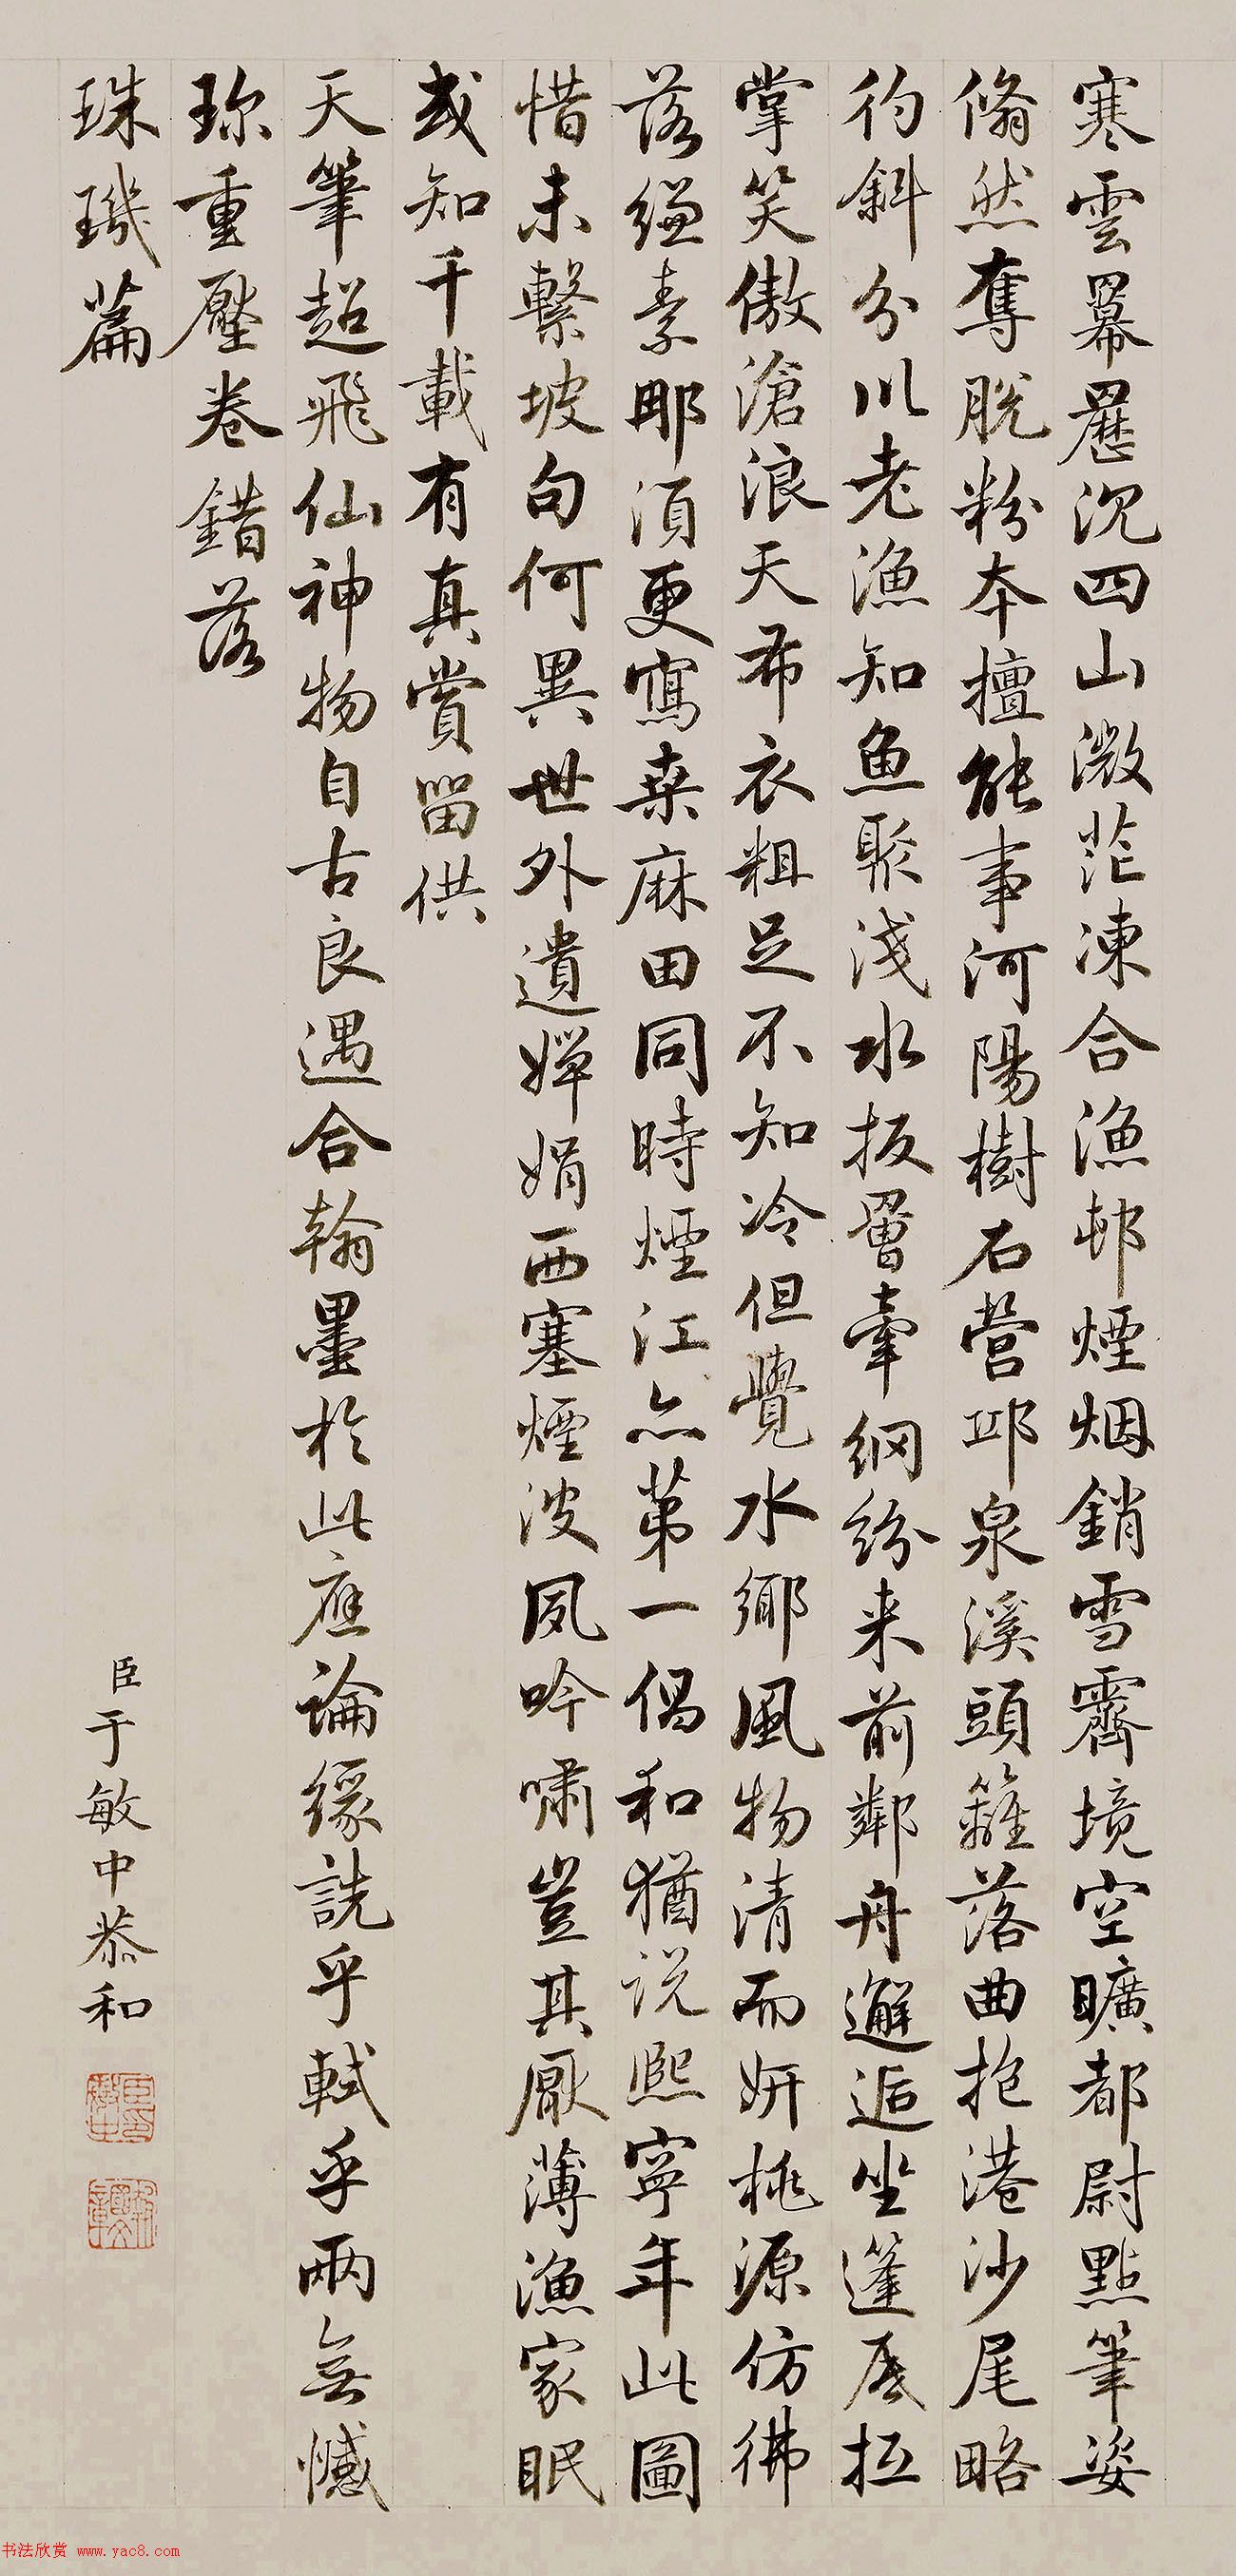 寒雲羃䍥沉四山微茫凍合漁邨煙烟銷雪霽境空曠都尉點筆姿
翛然奪脫粉本擅能事河陽樹石營邱泉溪頭籬落曲抱港沙尾略
彴斜分川老漁知魚聚淺水扳罾牽網紛来前鄰舟邂逅坐蓬底抵
掌笑傲滄浪天布衣粗足不知冷但覺水鄉風物清而妍桃源仿彿
落縑素那須更寫桒麻田同時煙江亦苐一倡和猶說熙寧年此圖
惜未繫坡句何異世外遺嬋娟西塞煙波夙吟嘯豈其厭薄漁家眠
或知千載有真賞留供
天筆超飛仙神物自古良遇合翰墨於此應論緣詵乎軾乎兩無憾
珎重壓卷錯落
珠璣篇
臣于敏中恭和
书法欣赏 www.yac8.com